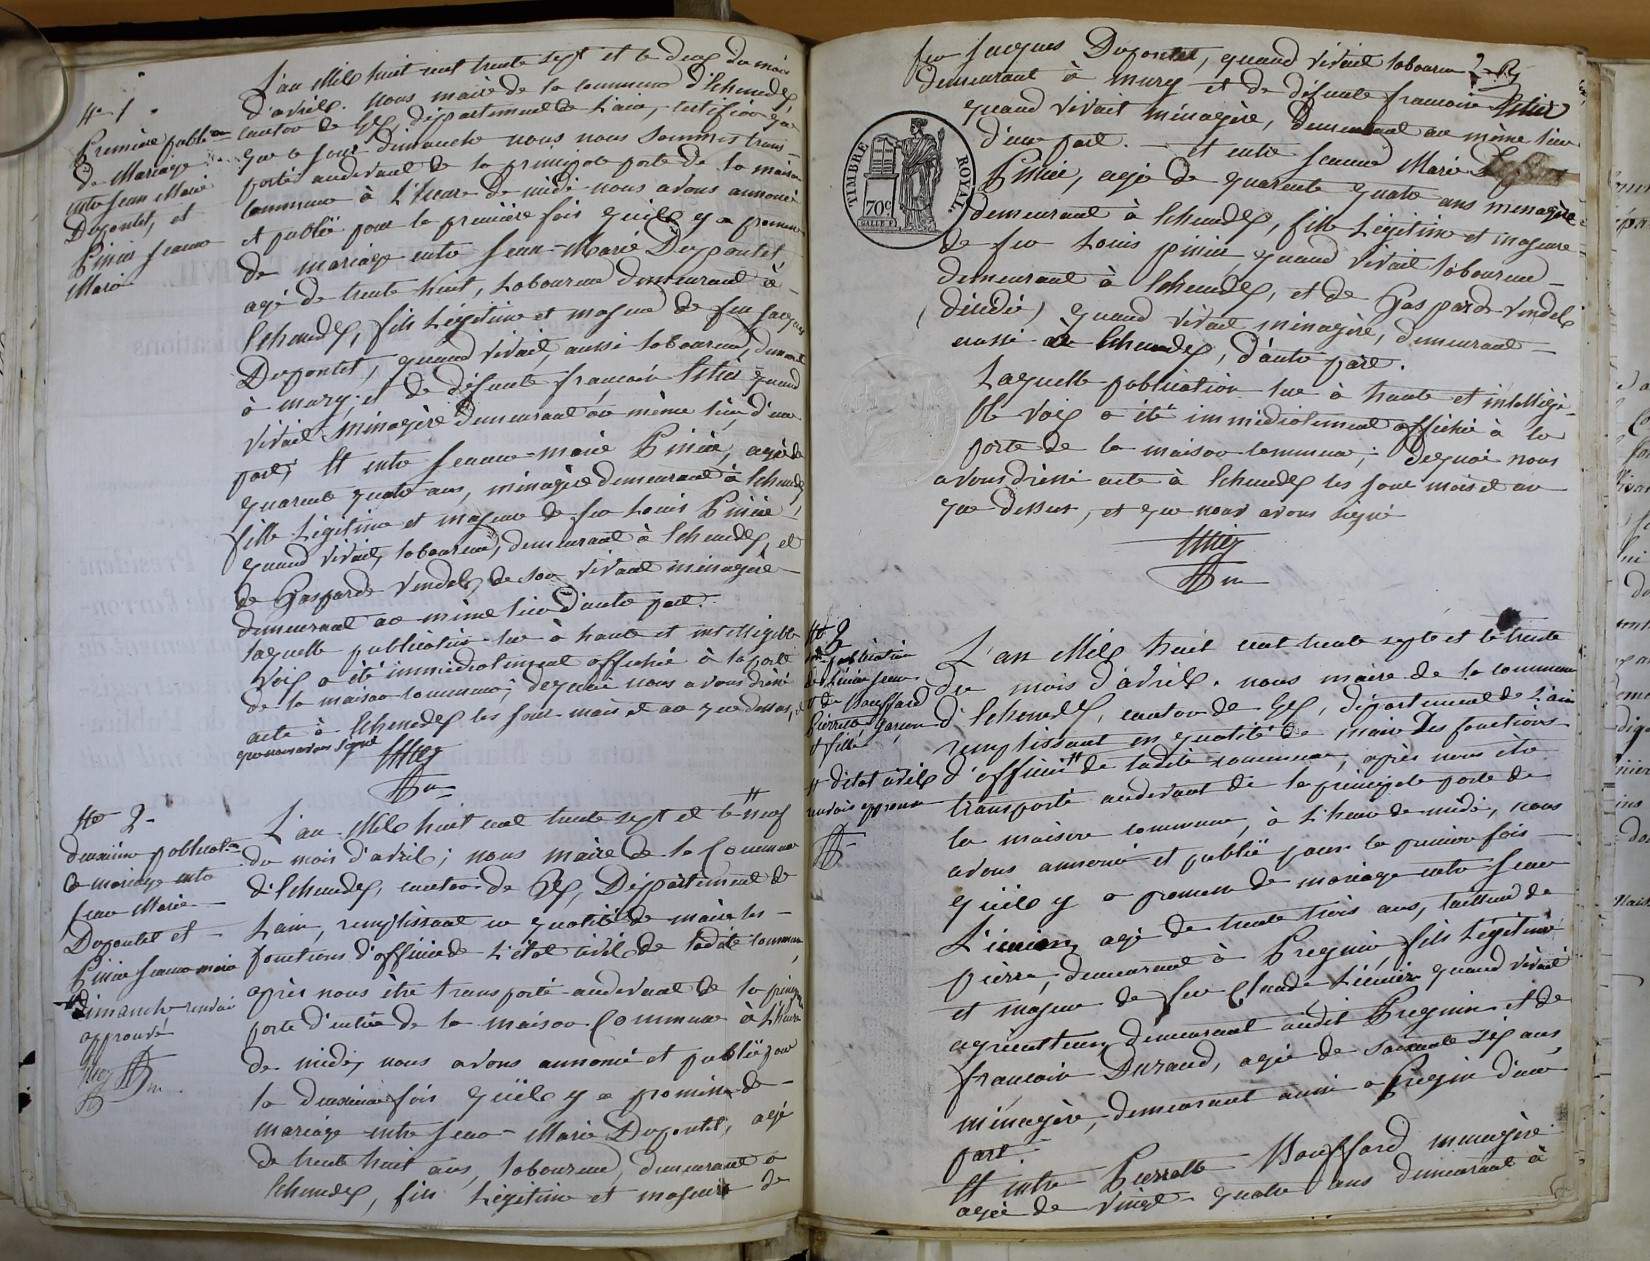 N° 1
Première publication
de Mariage
entre Jean Marie
Dupontet, et
Pinier Jeanne
Marie
L'an Mil huit cent trente sept et le deux du mois
d'avril. Nous maire de la commune d'Echenevex,
canton de Gex, département de L'ain, certifion que
que ce jour dimanche nous nous sommes trans-
porté audevant de la principale porte de la maison
commune à L'heure de midi nous avons annoncé
et publié pour la première fois qu'il y a promesse
de mariage entre Jean-Marie Dupontet,
agé de trente huit, laboureur demeurant à
Echenevex, fils Légitime et majeur de feu Jacques
Dupontet, quand vivait, aussi laboureur, demeurant
à mury; et de défunte françoise quand
vivait ménagère demeurant au même lieu d'une
part; Et entre Jeanne-marie Pinier, agée de
quarente quatre ans, ménagère demeurant à Echenevex
fille Légitime et majeure de feu Louis Pinier,
quand vivait, laboureur, demeurant à Echenevex, et
de Gasparde Vendel, de son vivant ménagère
demeurant au même lieu d'autre part.
laquelle publication lue à haute et intelligible
voix a été immédiatement affichée à la porte
de la maison commune; dequoi nous avons dréssé
acte à Echenevex les jour mois et an que dessus, et
que nous avons signé
N° 2
deuxième publication
de mariage entre
Jean Marie
Dupontet et
Pinier Jeanne marie
dimanche renvoi
approuvé
L'an Mil huit cent trente sept et le neuf
du mois d'avril; nous maire de la Commune
d'Echenevex, canton de Gex, Département de
Lain, remplissant en qualité de maire les
fonctions d'officier de L'état civil de ladite commune
après nous être transporté audevant de la principale
porte d'entrée de la maison Commune à L'heure
de midi, nous avons annoncé et publié pour
la deuxième fois qu'il y a promesse de
mariage entre Jean-Marie Dupontet, agé
de trente huit ans, laboureur, demeurant à
Echenevex, fils Légitime et majeur de
feu Jacques Dupontet, quand vivait laboureur
demeurant à mury et de défunte françoise
quand vivait ménagère, demeurant au même lieu
d'une part. Et entre Jeanne Marie
Pinier, agée de quarente quatre ans ménagère
demeurant à Echenevex, fille Légitime et majeure
de feu Louis pinier quand vivait laboureur
demeurant à Echenevex, et de Gasparde Vendel
quand vivait ménagère, demeurant
aussi à Echenevex, d'autre part.
Laquelle publication lue à haute et intelligi-
ble voix a été immédiatement affichée à la
porte de la maison commune; dequoi nous
avons dressé acte à Echenevex les jour mois et an
que dessus, et que nous avons signé
TIMBRE ROYAL.
70c
N° 2
publication
de Lissien Jean
et de Bouffard
Pierrette garçon
et fille
d'état civil
renvoi approuvé
L'an Mil huit cent trente septe et le trente
du mois d'avril. nous maire de la commune
d'Echenevex, canton de Gex, département de L'ain
remplissant en qualité de maire des fonctions
d'officier de ladite commune, après nous être
transporté audevant de la principale porte de
la maison commune, à L'heure de midi, nous
avons annoncé et publié pour la première fois
qu'il y a promesse de mariage entre Jean
agé de trente trois ans, tailleur de
pierre, demeurant à Pregnin, fils Légitime
et majeur de feu Claude quand vivait
agriculteur, demeurant audit Pregnin et de
françoise Durand, agée de soixante six ans
ménagère, demeurant aussi a Pregnin d'une
part.
Et entre Pierrette Bouffard ménagère
agée de vingt quatre ans demeurant à